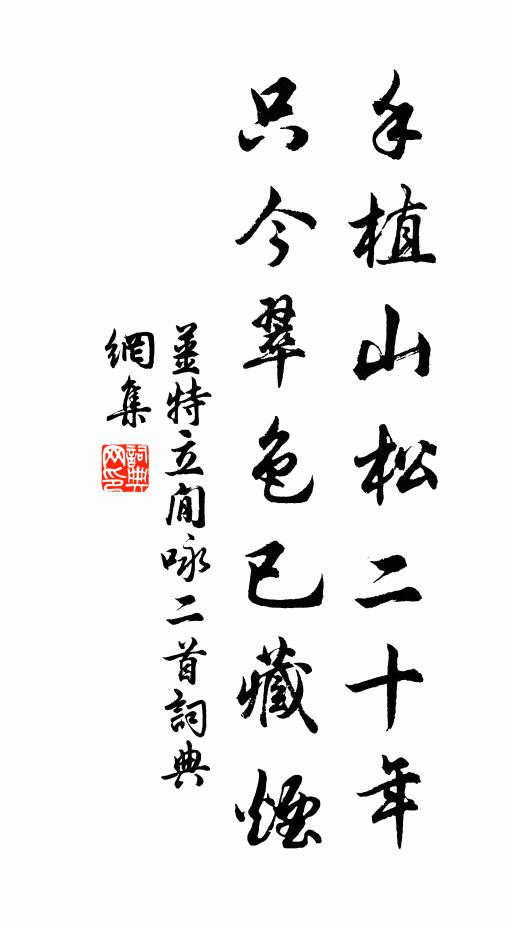 手植山松二十年
只今翠色已藏煙
姜特立閒咏二首詞典
網集
詞典
网印